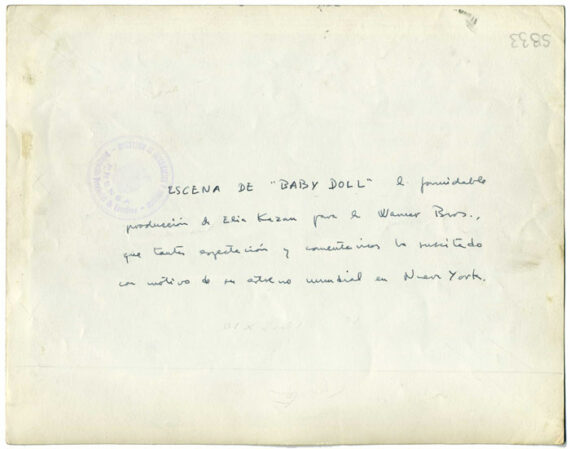 5833
ESCENA DE "BABY DOLL" la formidable
producción de Elia Kazan para la Warner Bros.,
que tanta expectación y comentarios ha suscitado
con motivo de su estreno mundial en Nueva York.